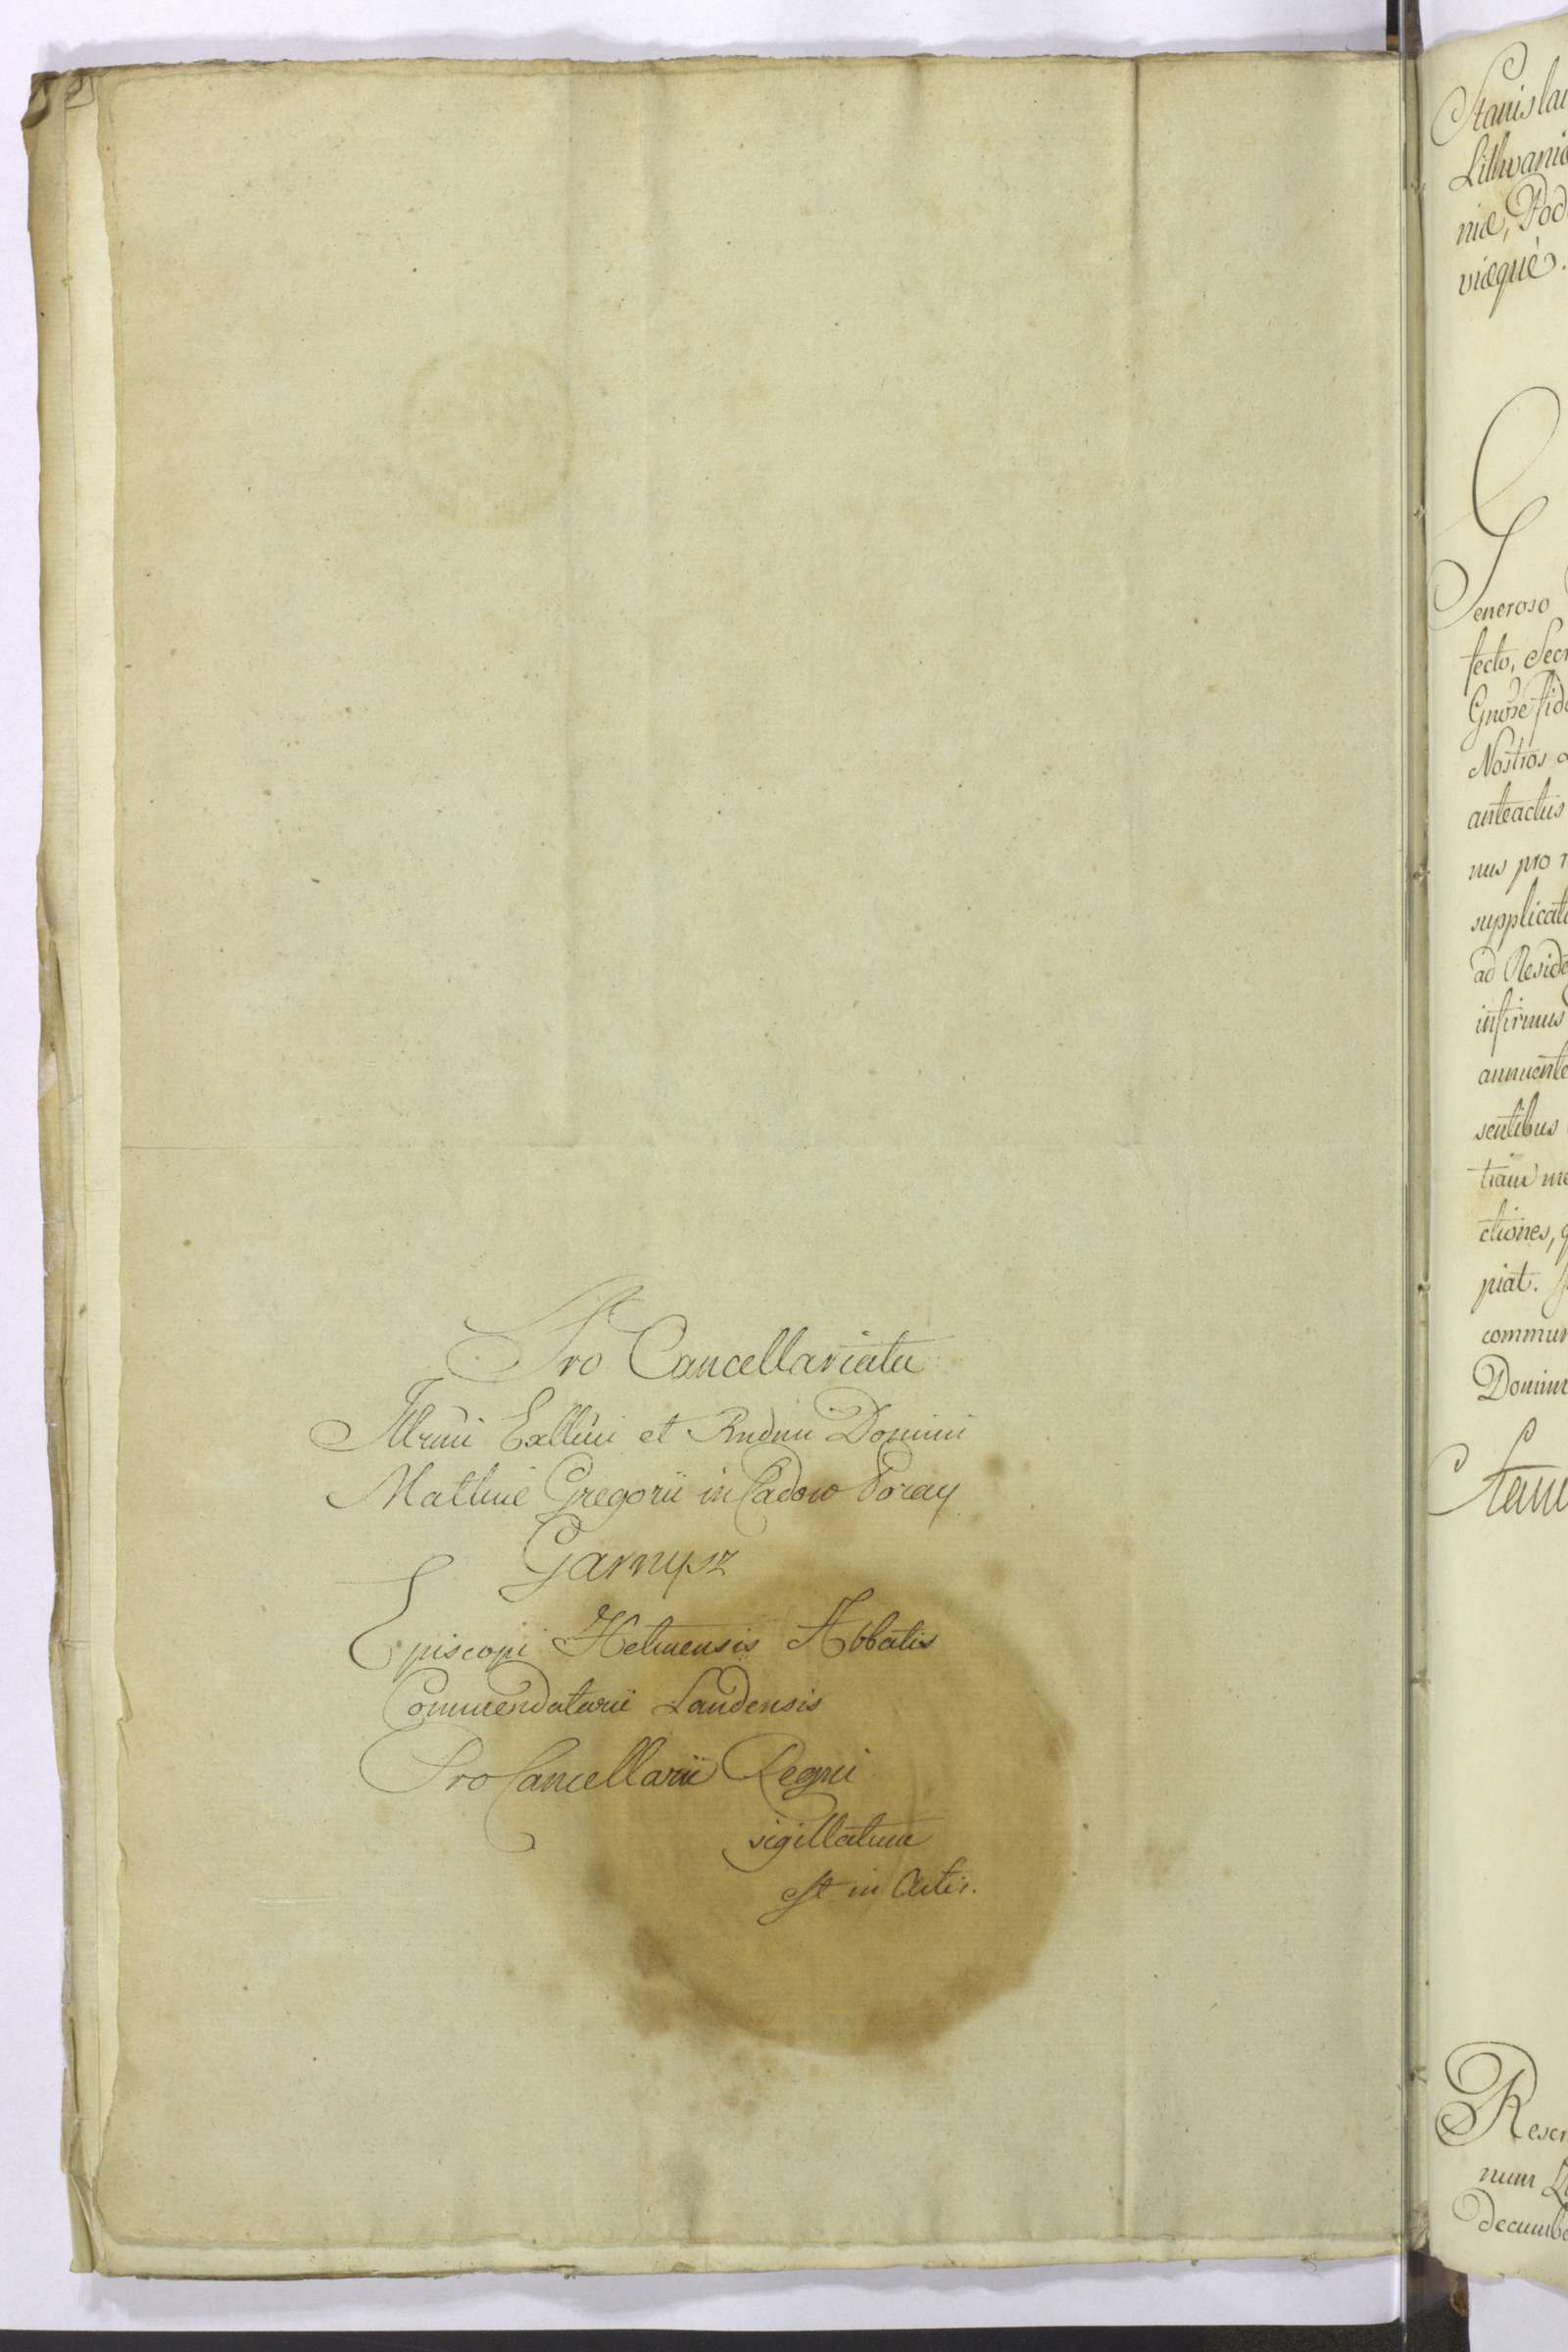 Pro Cancellariatu
Illrmi Exllmi et Rndmi Domini
Mathiae Gregorii in Radow Poray
Garnysz
Episcopi Helmensis Abbatis
Commendatarii Landensis
Pro Cancellarii Regni
sigillatum
est in Actis.
Stanislau
Lithvaniæ
niæ, Pod
viæque.
Generoso
fecto, Secr
Gnose fide
Nostros
anteactus
nus pro
supplicat
ad Reside
infirmus
annuente
sentibus
tiam me
ctiones, q
piat.
commun
Domini
Stani
Rescr
num
Decumbe